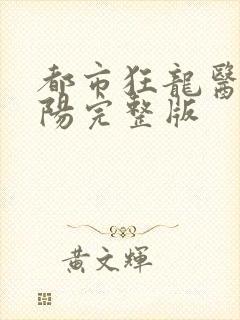 都市狂龍醫
陽完整版
黃文輝